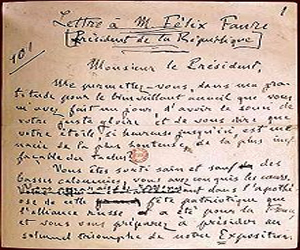 1
Lettre à M. Félix Faure
Président de la République
101
Monsieur le Président,
Me permettez-vous, dans ma gra
titude pour le bienveillant accueil que vous
m'avez fait un jour, d'avoir le souci de
votre juste gloire et de vous dire que
votre étoile, si heureuse jusqu'ici, est me
nacée de la plus honteuse, de la plus inef
façable des taches?
Vous êtes sorti sain et sauf des
basses calomnies, vous avez conquis les cœurs.
dans l'apothé
ose de cette fête patriotique que
l'alliance russe a été pour la France
et vous vous préparez à présider au
solennel triomphe de notre Exposition